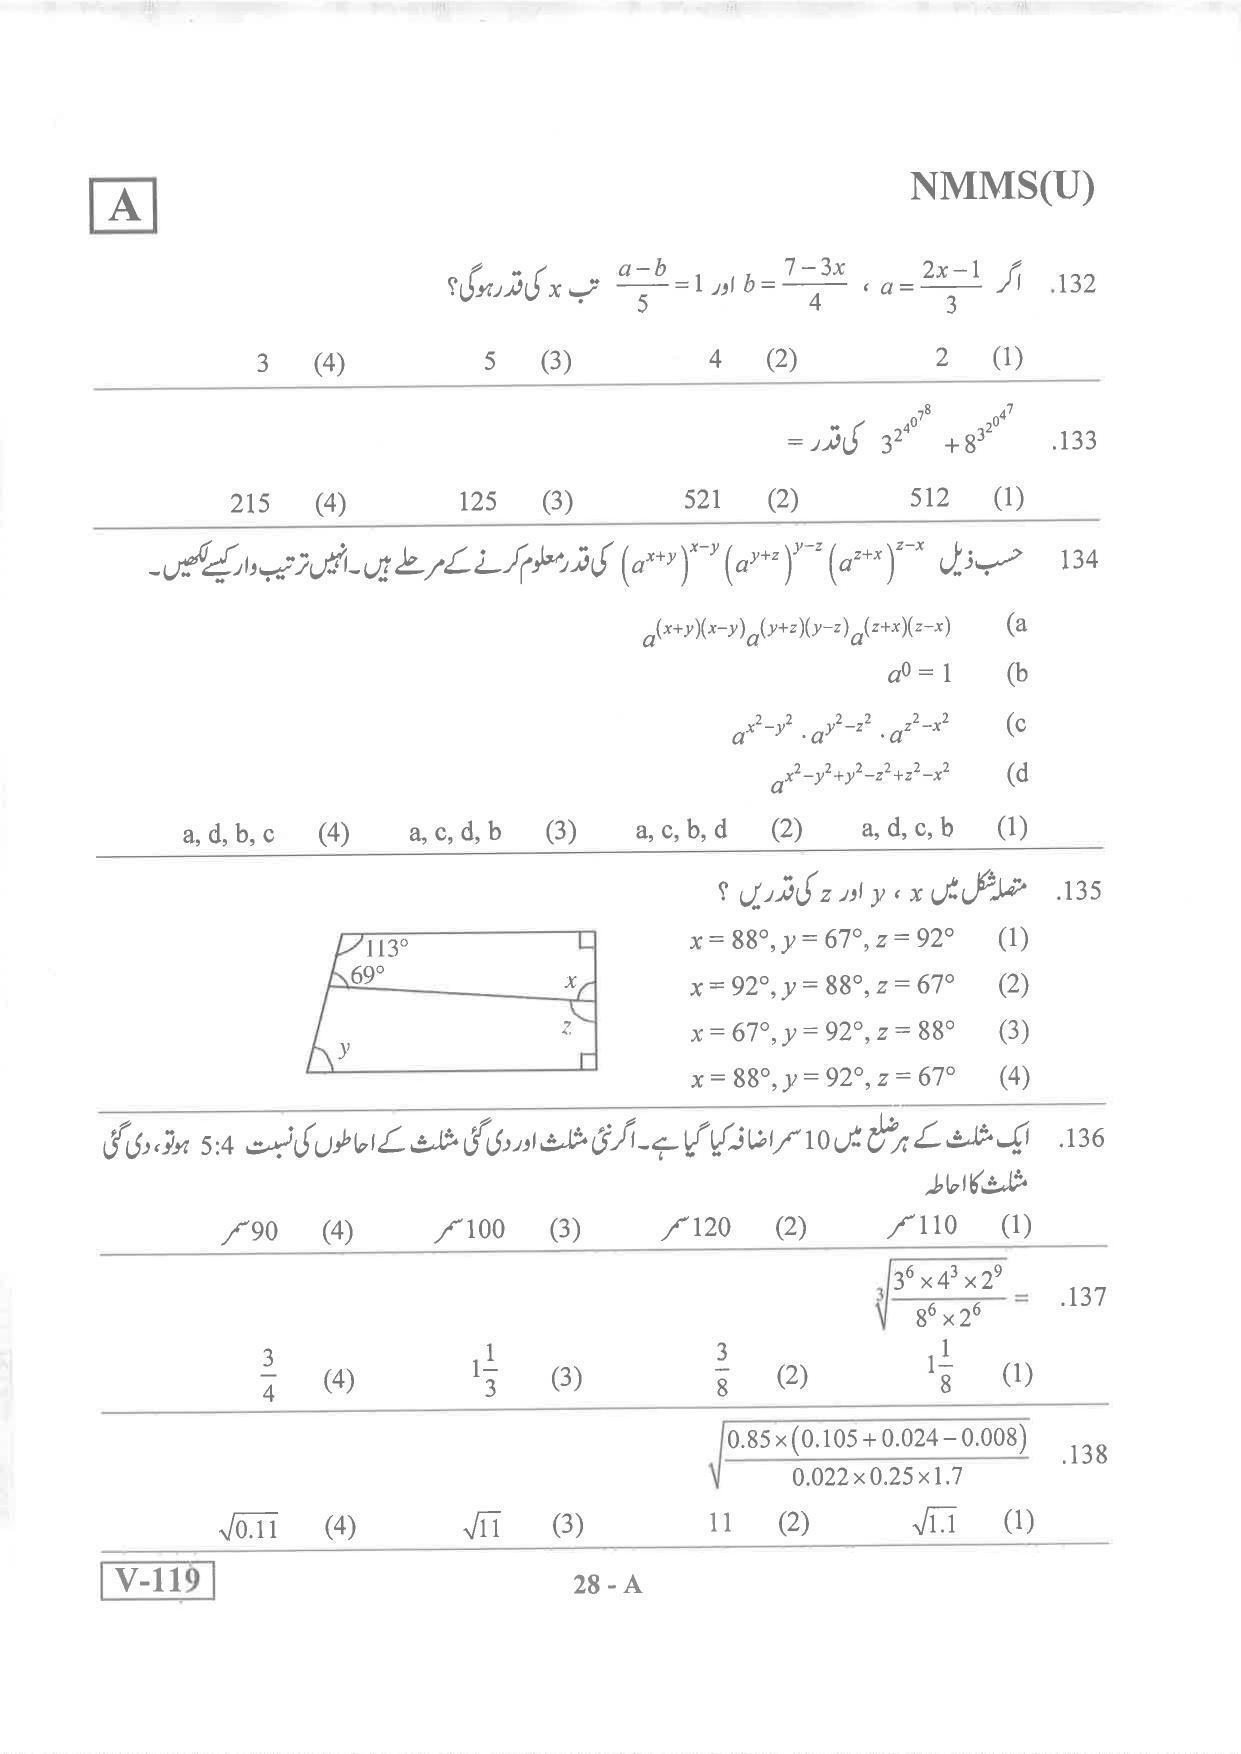 A
NMMS(U)
132. اگر a = (2x−1)/3 ، b = (7−3x)/4 اور (a−b)/5 = 1 تب x کی قدر ہوگی؟
(1) 2 (2) 4 (3) 5 (4) 3
133. 3^2^4^0^7^8 + 8^3^2^0^4^7 کی قدر =
(1) 512 (2) 521 (3) 125 (4) 215
134 حسب ذیل (a^(x+y))^(x−y) (a^(y+z))^(y−z) (a^(z+x))^(z−x) کی قدر معلوم کرنے کے مرحلے ہیں۔ انہیں ترتیب وار کیسے لکھیں۔
(a a^((x+y)(x−y)) a^((y+z)(y−z)) a^((z+x)(z−x))
(b a⁰ = 1
(c a^(x²−y²) . a^(y²−z²) . a^(z²−x²)
(d a^(x²−y²+y²−z²+z²−x²)
(1) a, d, c, b (2) a, c, b, d (3) a, c, d, b (4) a, d, b, c
135. متصلہ شکل میں x ، y اور z کی قدریں ؟
(1) x = 88°, y = 67°, z = 92°
(2) x = 92°, y = 88°, z = 67°
(3) x = 67°, y = 92°, z = 88°
(4) x = 88°, y = 92°, z = 67°
113°
69°
x
z
y
136. ایک مثلث کے ہر ضلع میں 10 سمر اضافہ کیا گیا ہے۔ اگر نئی مثلث اور دی گئی مثلث کے احاطوں کی نسبت 5:4 ہو تو، دی گئی
مثلث کا احاطہ
(1) 110 سمر (2) 120 سمر (3) 100 سمر (4) 90 سمر
137. ∛((3⁶ × 4³ × 2⁹)/(8⁶ × 2⁶)) =
(1) 1 1/8 (2) 3/8 (3) 1 1/3 (4) 3/4
138. √((0.85 × (0.105 + 0.024 − 0.008))/(0.022 × 0.25 × 1.7))
(1) √1.1 (2) 11 (3) √11 (4) √0.11
V-119
28 - A